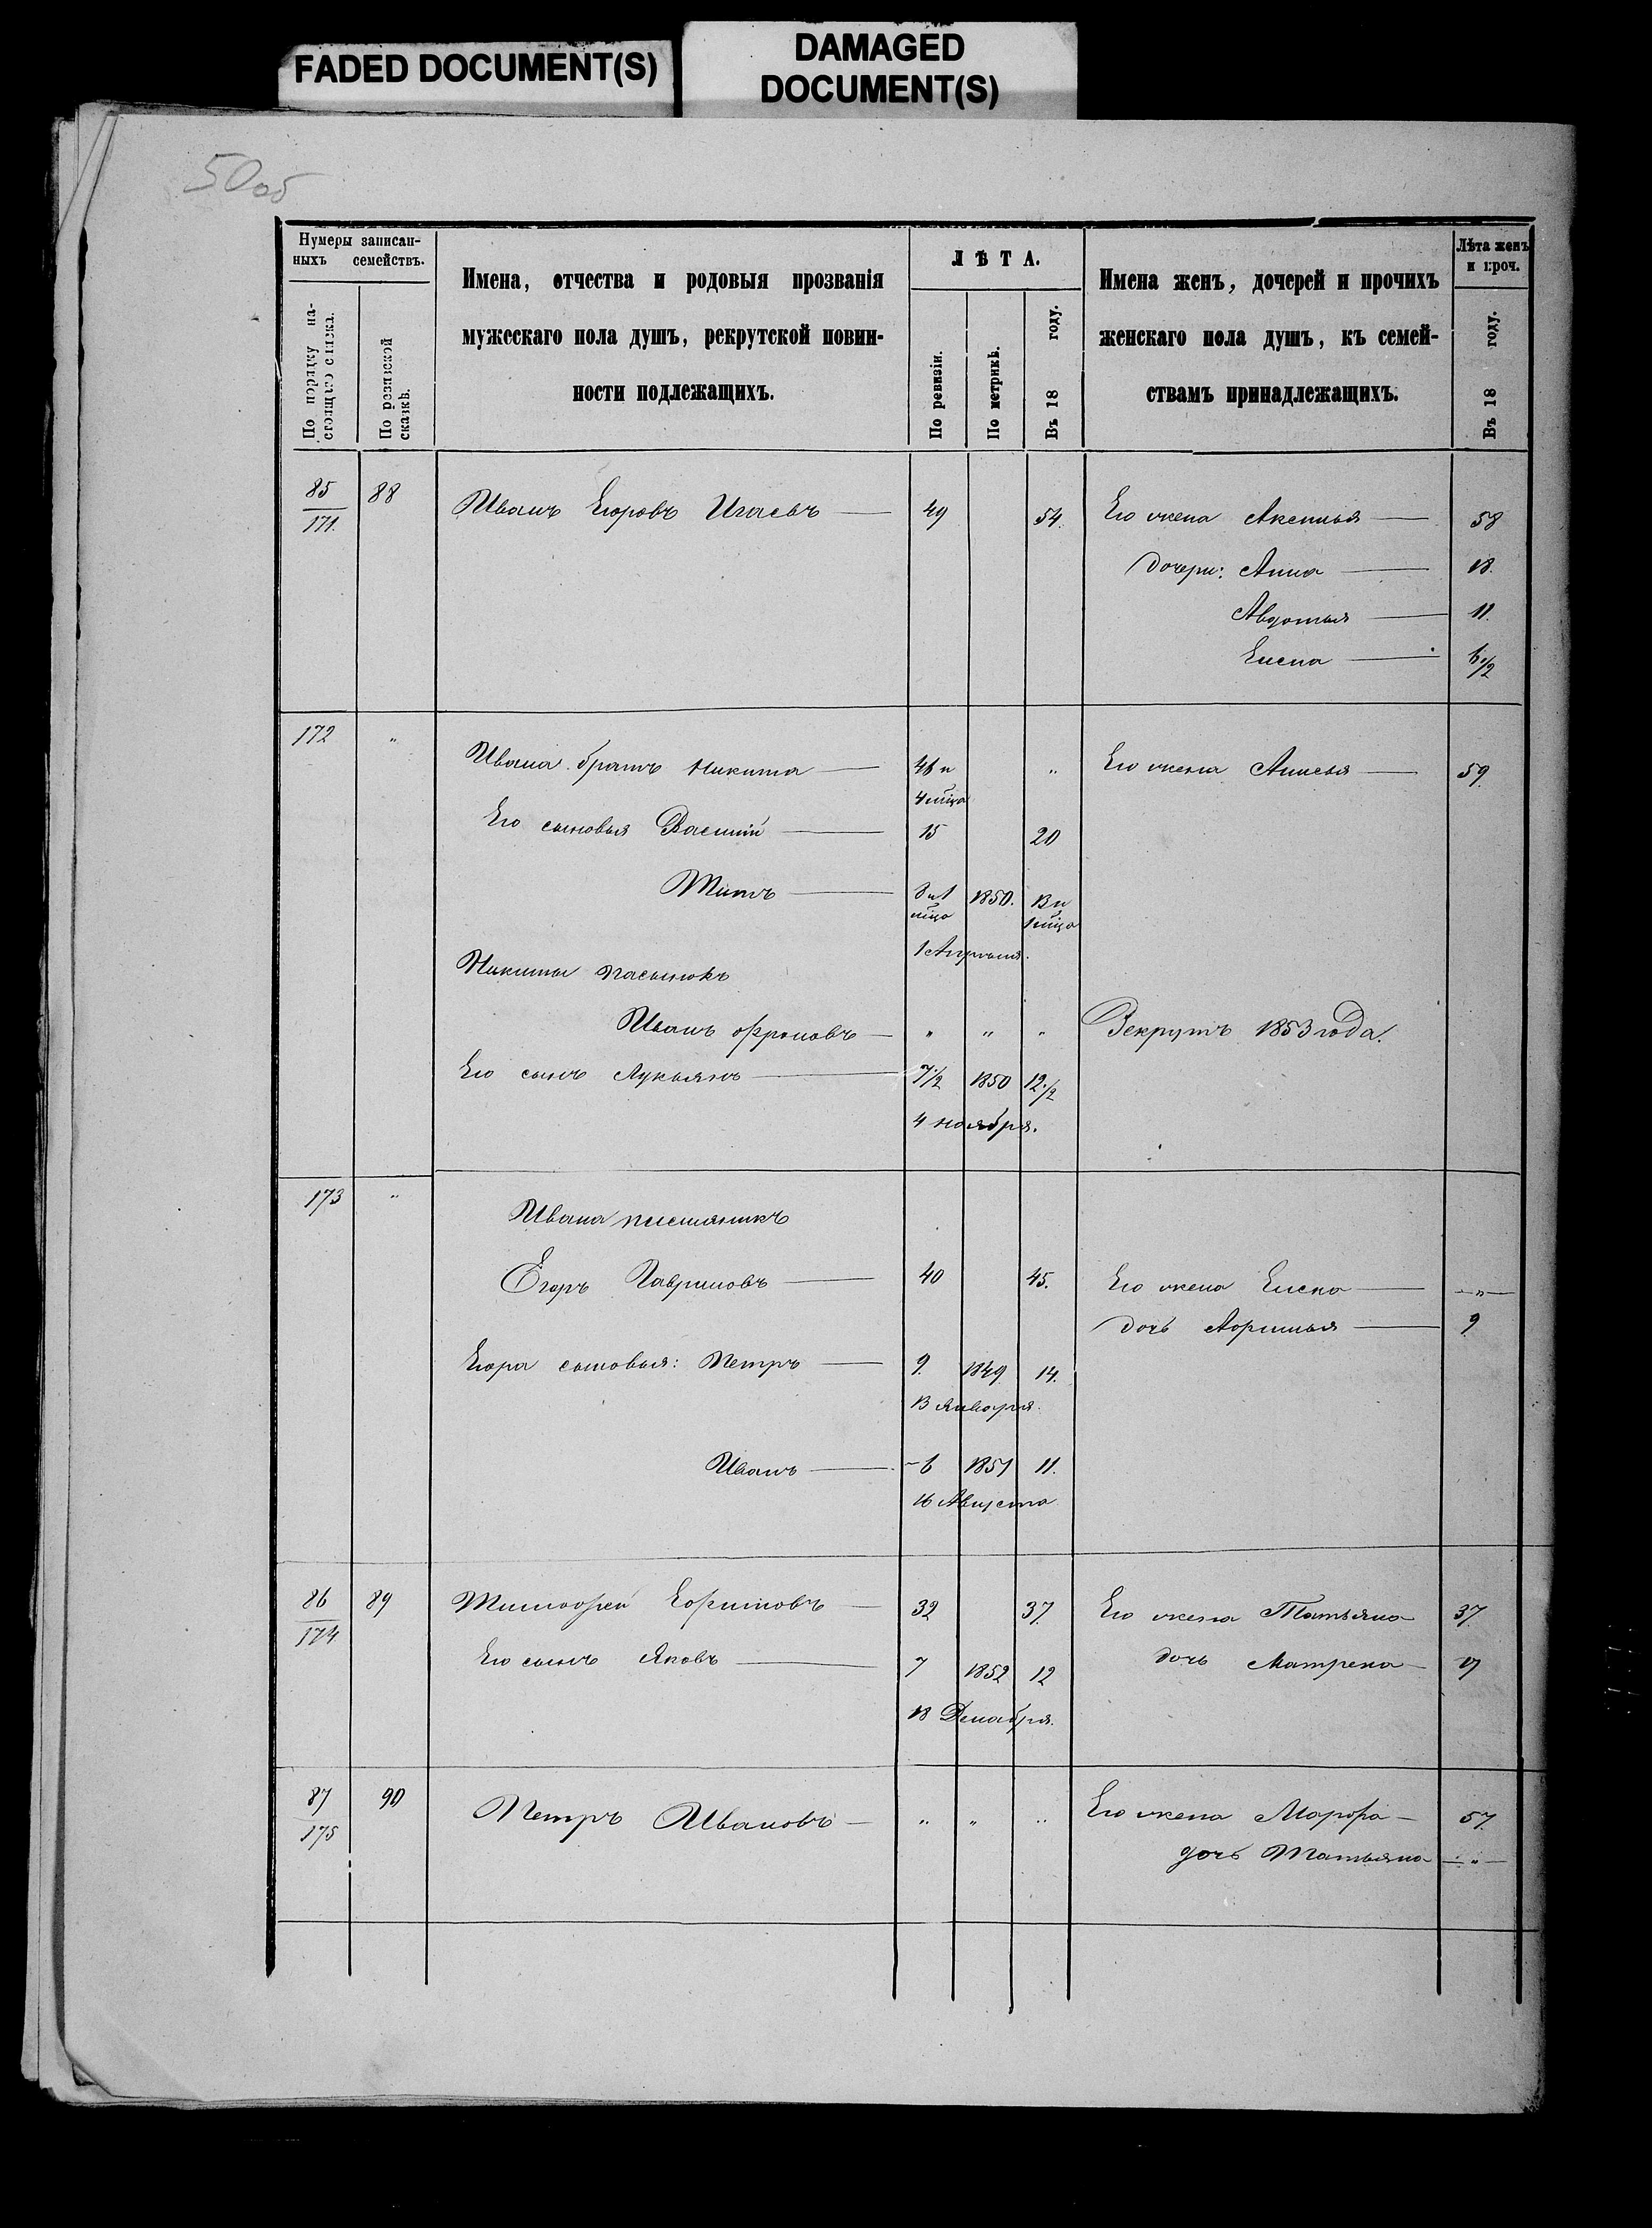 FADED DOCUMENT(S)
DAMAGED
DOCUMENT(S)
50об
Нумеры записан-
ныхъ семействъ.
По порядку на-
стоящаго списка.
По ревизской
сказкѣ.
Имена, отчества и родовыя прозванія
мужескаго пола душъ, рекрутской повин-
ности подлежащихъ.
ЛѢТА.
По ревизіи.
По метрикѣ.
Въ 18 году.
Имена женъ, дочерей и прочихъ
женскаго пола душъ, къ семей-
ствамъ принадлежащихъ.
Лѣта женъ
и проч.
Въ 18 году.
85 88 Иванъ Егоровъ 49 54. Его жена Аксинья 58
171.
дочери: Анна 18.
Авдотья 11.
Елена 6 1/2
172 " Ивана братъ Никита 46 и " Его жена Анисья 59.
4 м̃ца
Его сыновья Василій 15 20
Титъ 8 и 1 1850. 13 и
м̃ца 1 м̃ца
1 Апрѣля.
Никиты пасынокъ
Иванъ Фроловъ " " " Рекрутъ 1853 года.
Его сынъ Лукьянъ 7 1/2 1850 12 1/2
4 ноября.
173 " Ивана племянникъ
Егоръ Гавриловъ 40 45. Его жена Елена "
дочь Аксинья 9
Егора сыновья: Петръ 9. 1849 14.
13 Января.
Иванъ 6 1851 11.
16 Августа
86 89 Тимофей Ефимовъ 32 37 Его жена Татьяна 37.
174
Его сынъ Яковъ 7 1852 12 дочь Матрена 17
18 Декабря.
87 90 Петръ Ивановъ " " " Его жена Марфа 57.
175
дочь Татьяна "